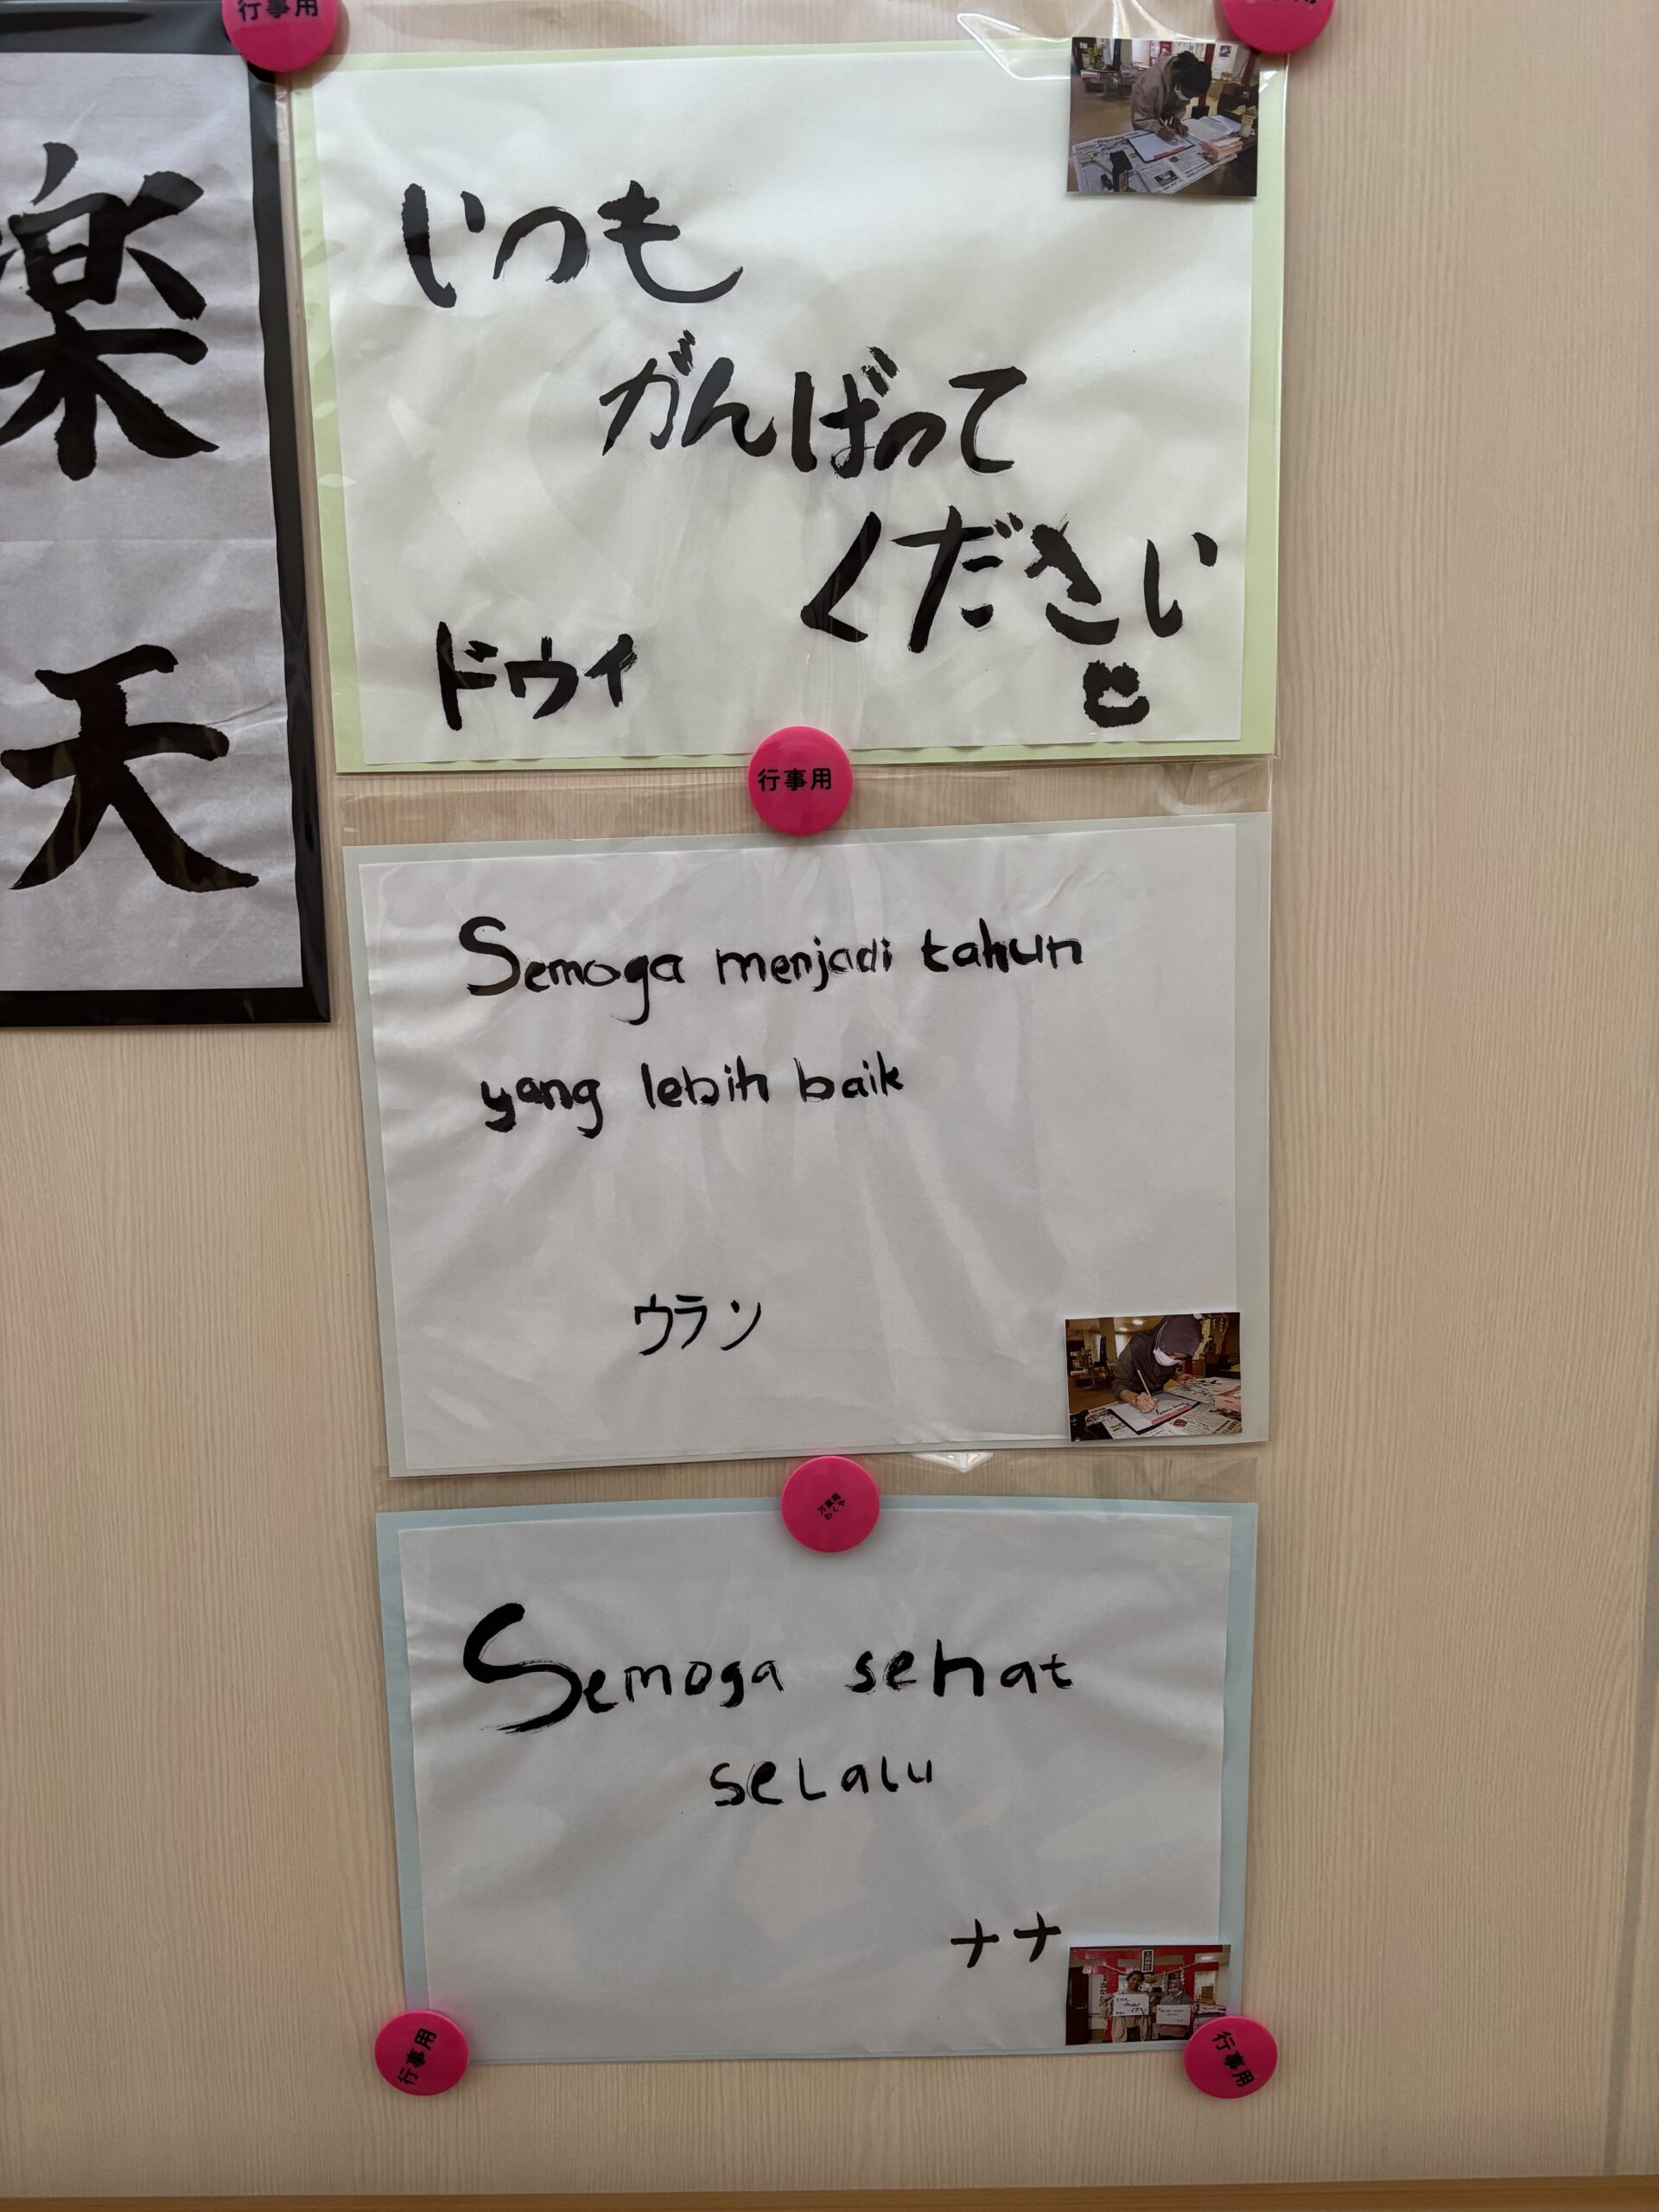 行事用
楽
天
いつも
がんばって
ください
ドウィ
行事用
Semoga menjadi tahun
yang lebih baik
ウラン
Semoga sehat
selalu
ナナ
行事用
行事用